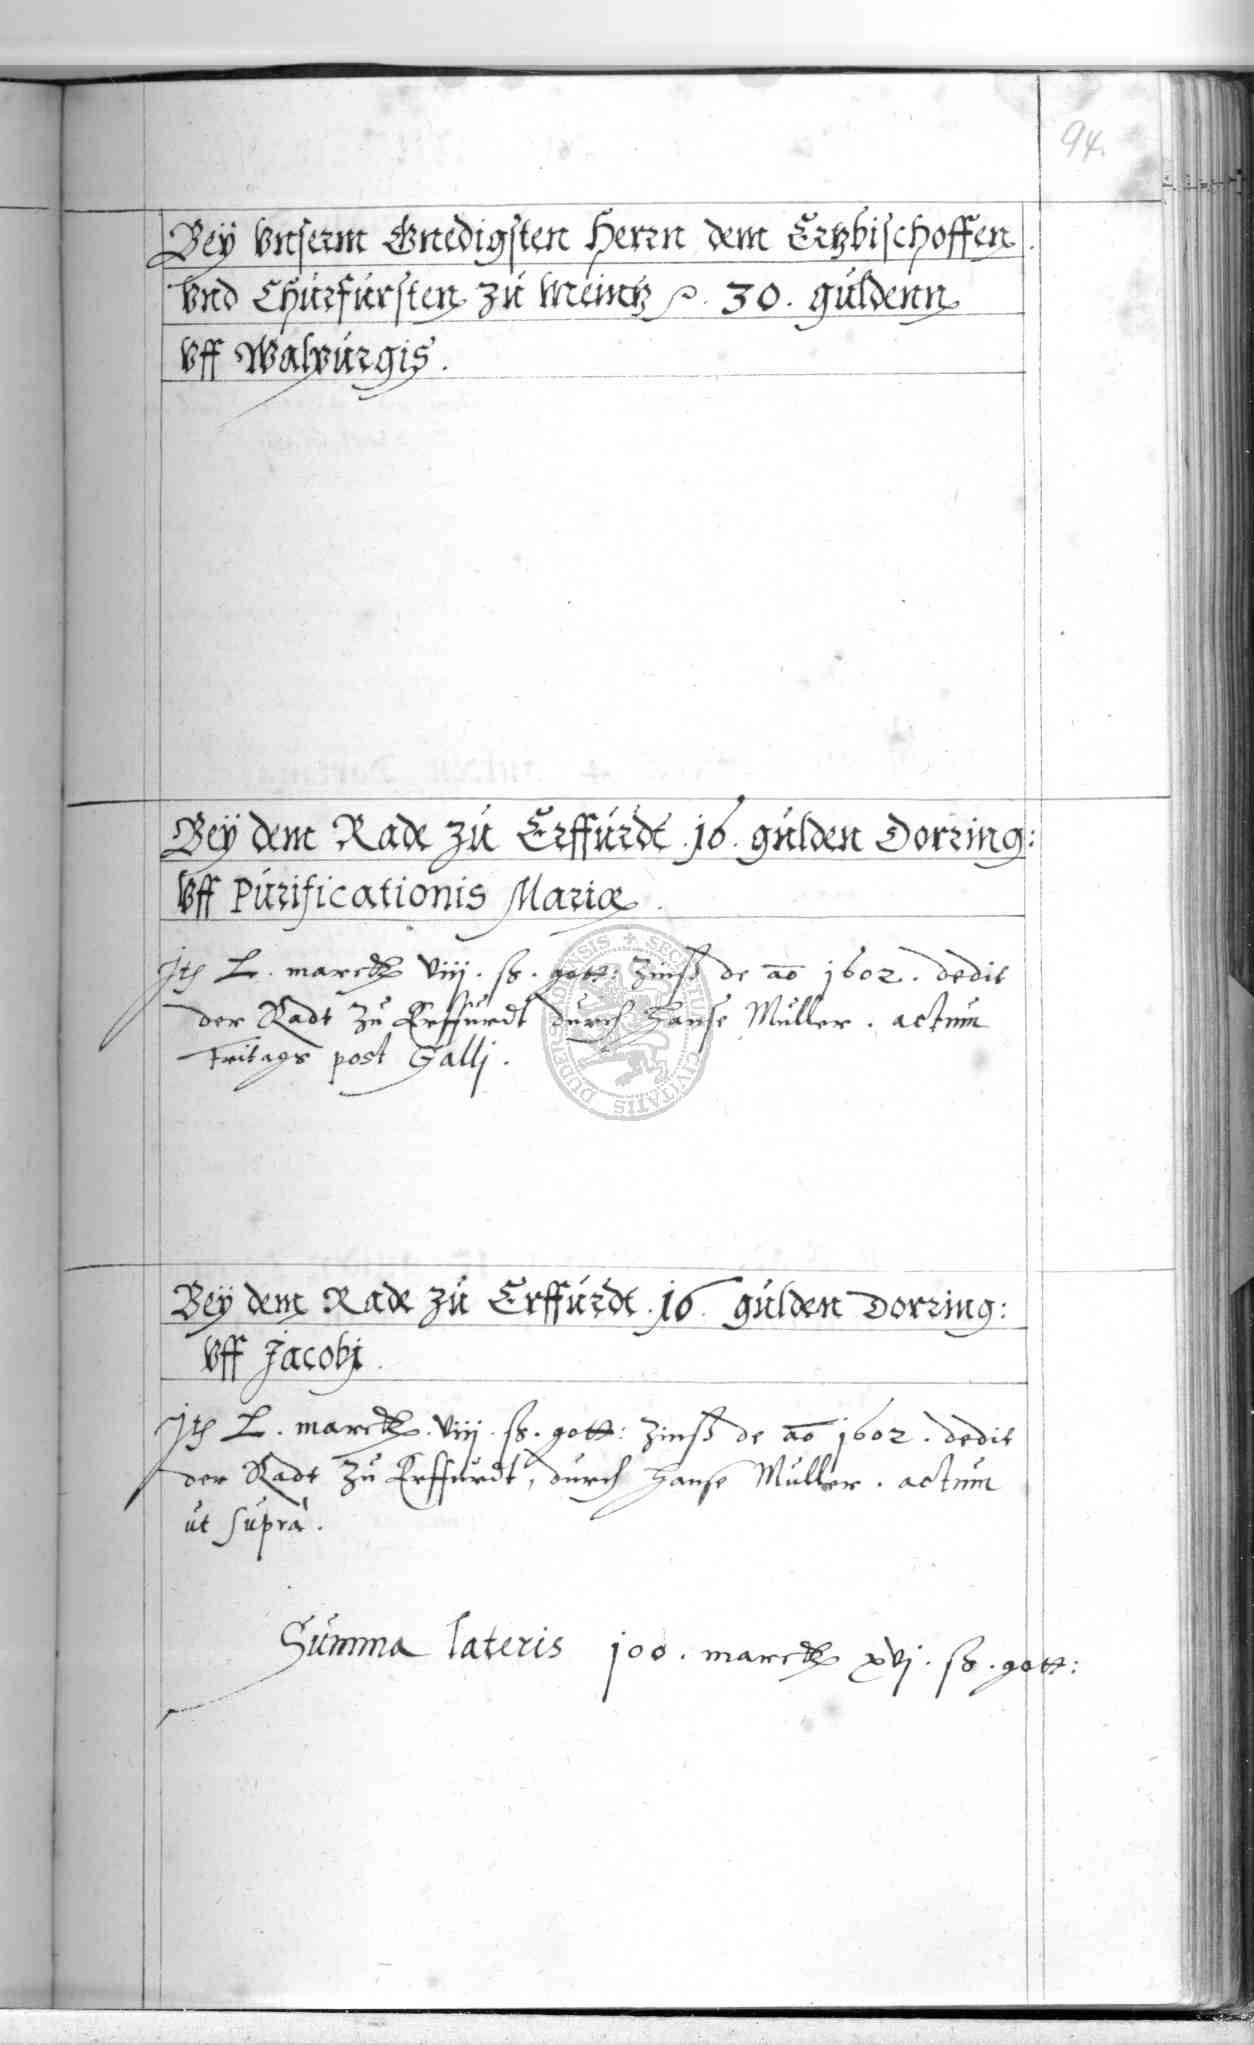 94.
Beÿ Vnserm Gnedigsten Herrn dem Ertzbischoffen
Vnd Churfursten zu Meintz p. 30. guldenn
Vff Walpurgis.
Beÿ dem Rade zu Erffurdt .16. gulden Dorring:
Vff Purificationis Mariæ.
It L. marck viiij. ß. gott: Zinß de ao 1602. dedit
der Radt Zu Erffurdt durch Hanse Muller. actum
Fritags post Galli.
Beÿ dem Rade zu Erffurdt .16. gulden Dorring:
Vff Jacobi.
It L. marck. viiij. ß. gott: Zinß de ao 1602. dedit
der Radt Zu Erffurdt, durch Hanse Muller. actum
ut suprà.
Summa lateris 100. marck xvj. ß. gott:
CIVITATIS